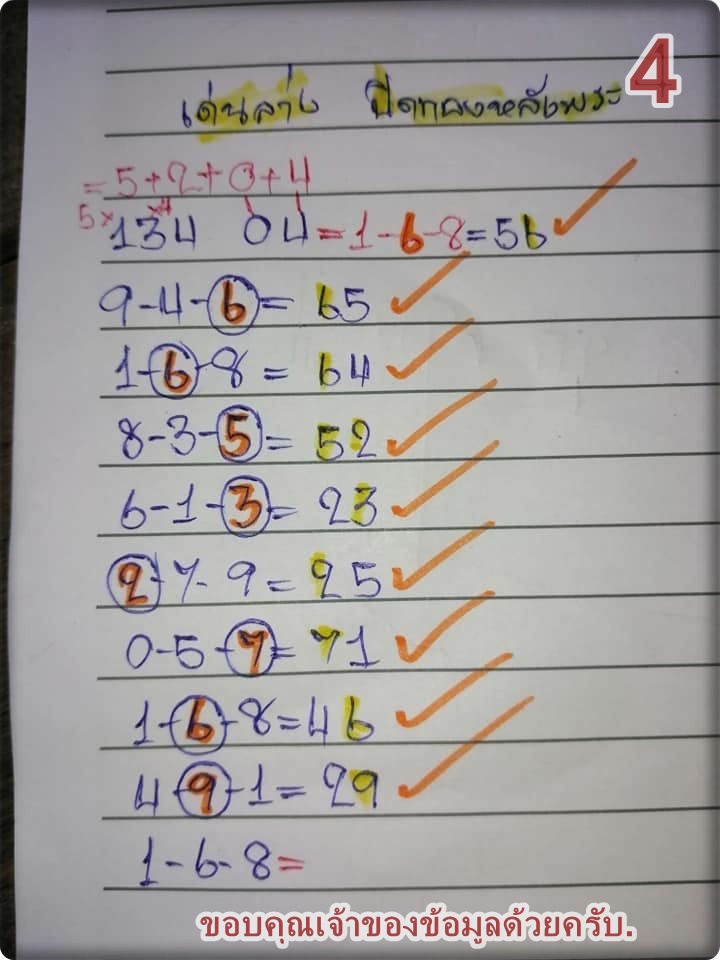 4
เด่นล่าง ปิดทองหลังพระ
=5+2+0+4
5×
134 04=1-6-8=56
9-4-6=65
1-6-8=64
8-3-5=52
6-1-3=23
2-7-9=25
0-5-7=71
1-6-8=46
4-9-1=29
1-6-8=
ขอบคุณเจ้าของข้อมูลด้วยครับ.